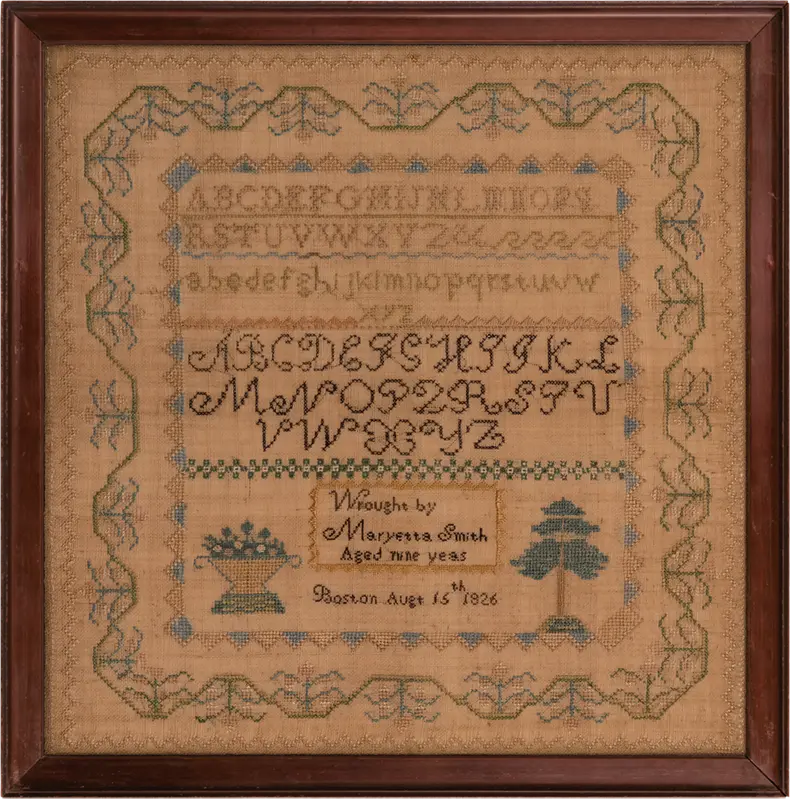 ABCDEFGHIJKLMNOPQ
RSTUVWXYZ&
abcdefghijklmnopqrstuvw
xyz
ABCDEFGHIJKL
MNOPQRSTU
VWXYZ
Wrought by
Maryetta Smith
Aged nine yeas
Boston Augt 15th 1826